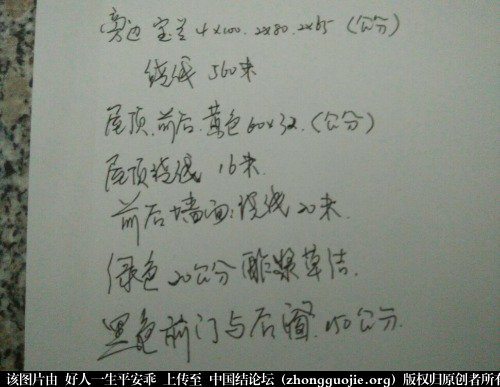 旁边 宝兰 4×100. 2×80. 2×65 (公分)
绕线 560米
屋顶.前后.黄色60×32.(公分)
屋顶绕线 16米.
前后墙面:绕线20米.
绿色 20公分 酢浆草结.
黑色前门与后窗.150公分.
该图片由 好人一生平安乖 上传至 中国结论坛 (zhongguojie.org) 版权归原创者所